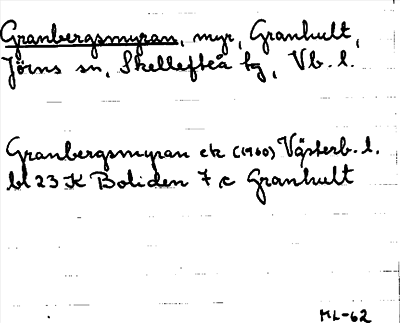 Granbergsmyran, myr, Granhult,
Jörns sn, Skellefteå kg, Vb. l.
Granbergsmyran ek (1960) Västerb. l.
bl 23 K Boliden 7 c Granhult
ML-62